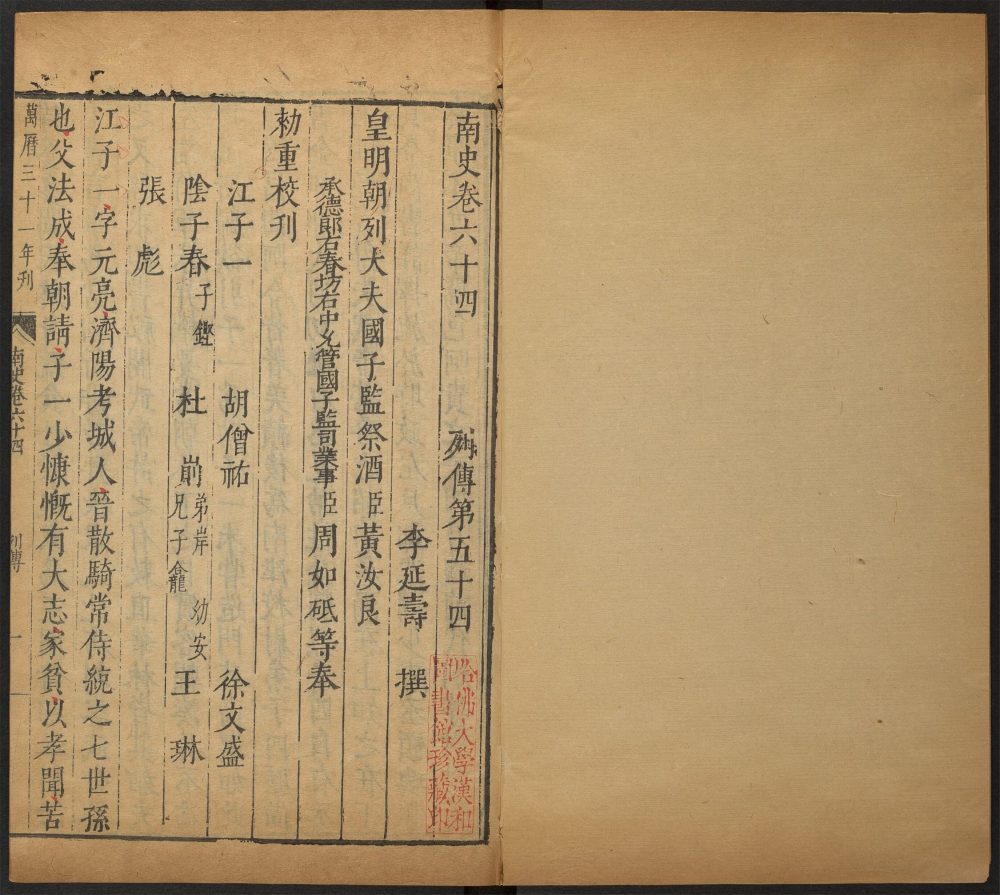 南史卷六十四 列傳第五十四
李延壽 撰
皇明朝列大夫國子監祭酒臣黃汝良
承德郎右春坊右中允管國子監司業事臣周如砥等奉
勅重校刊
江子一 胡僧祐 徐文盛
陰子春子鏗 杜崱弟岸 幼安 兄子龕 王琳
張彪
江子一字元亮濟陽考城人晉散騎常侍統之七世孫
也父法成奉朝請子一少慷慨有大志家貧以孝聞苦
萬曆三十一年刊 南史卷六十四 列傳 一
哈佛大學漢和
圖書館珍藏印